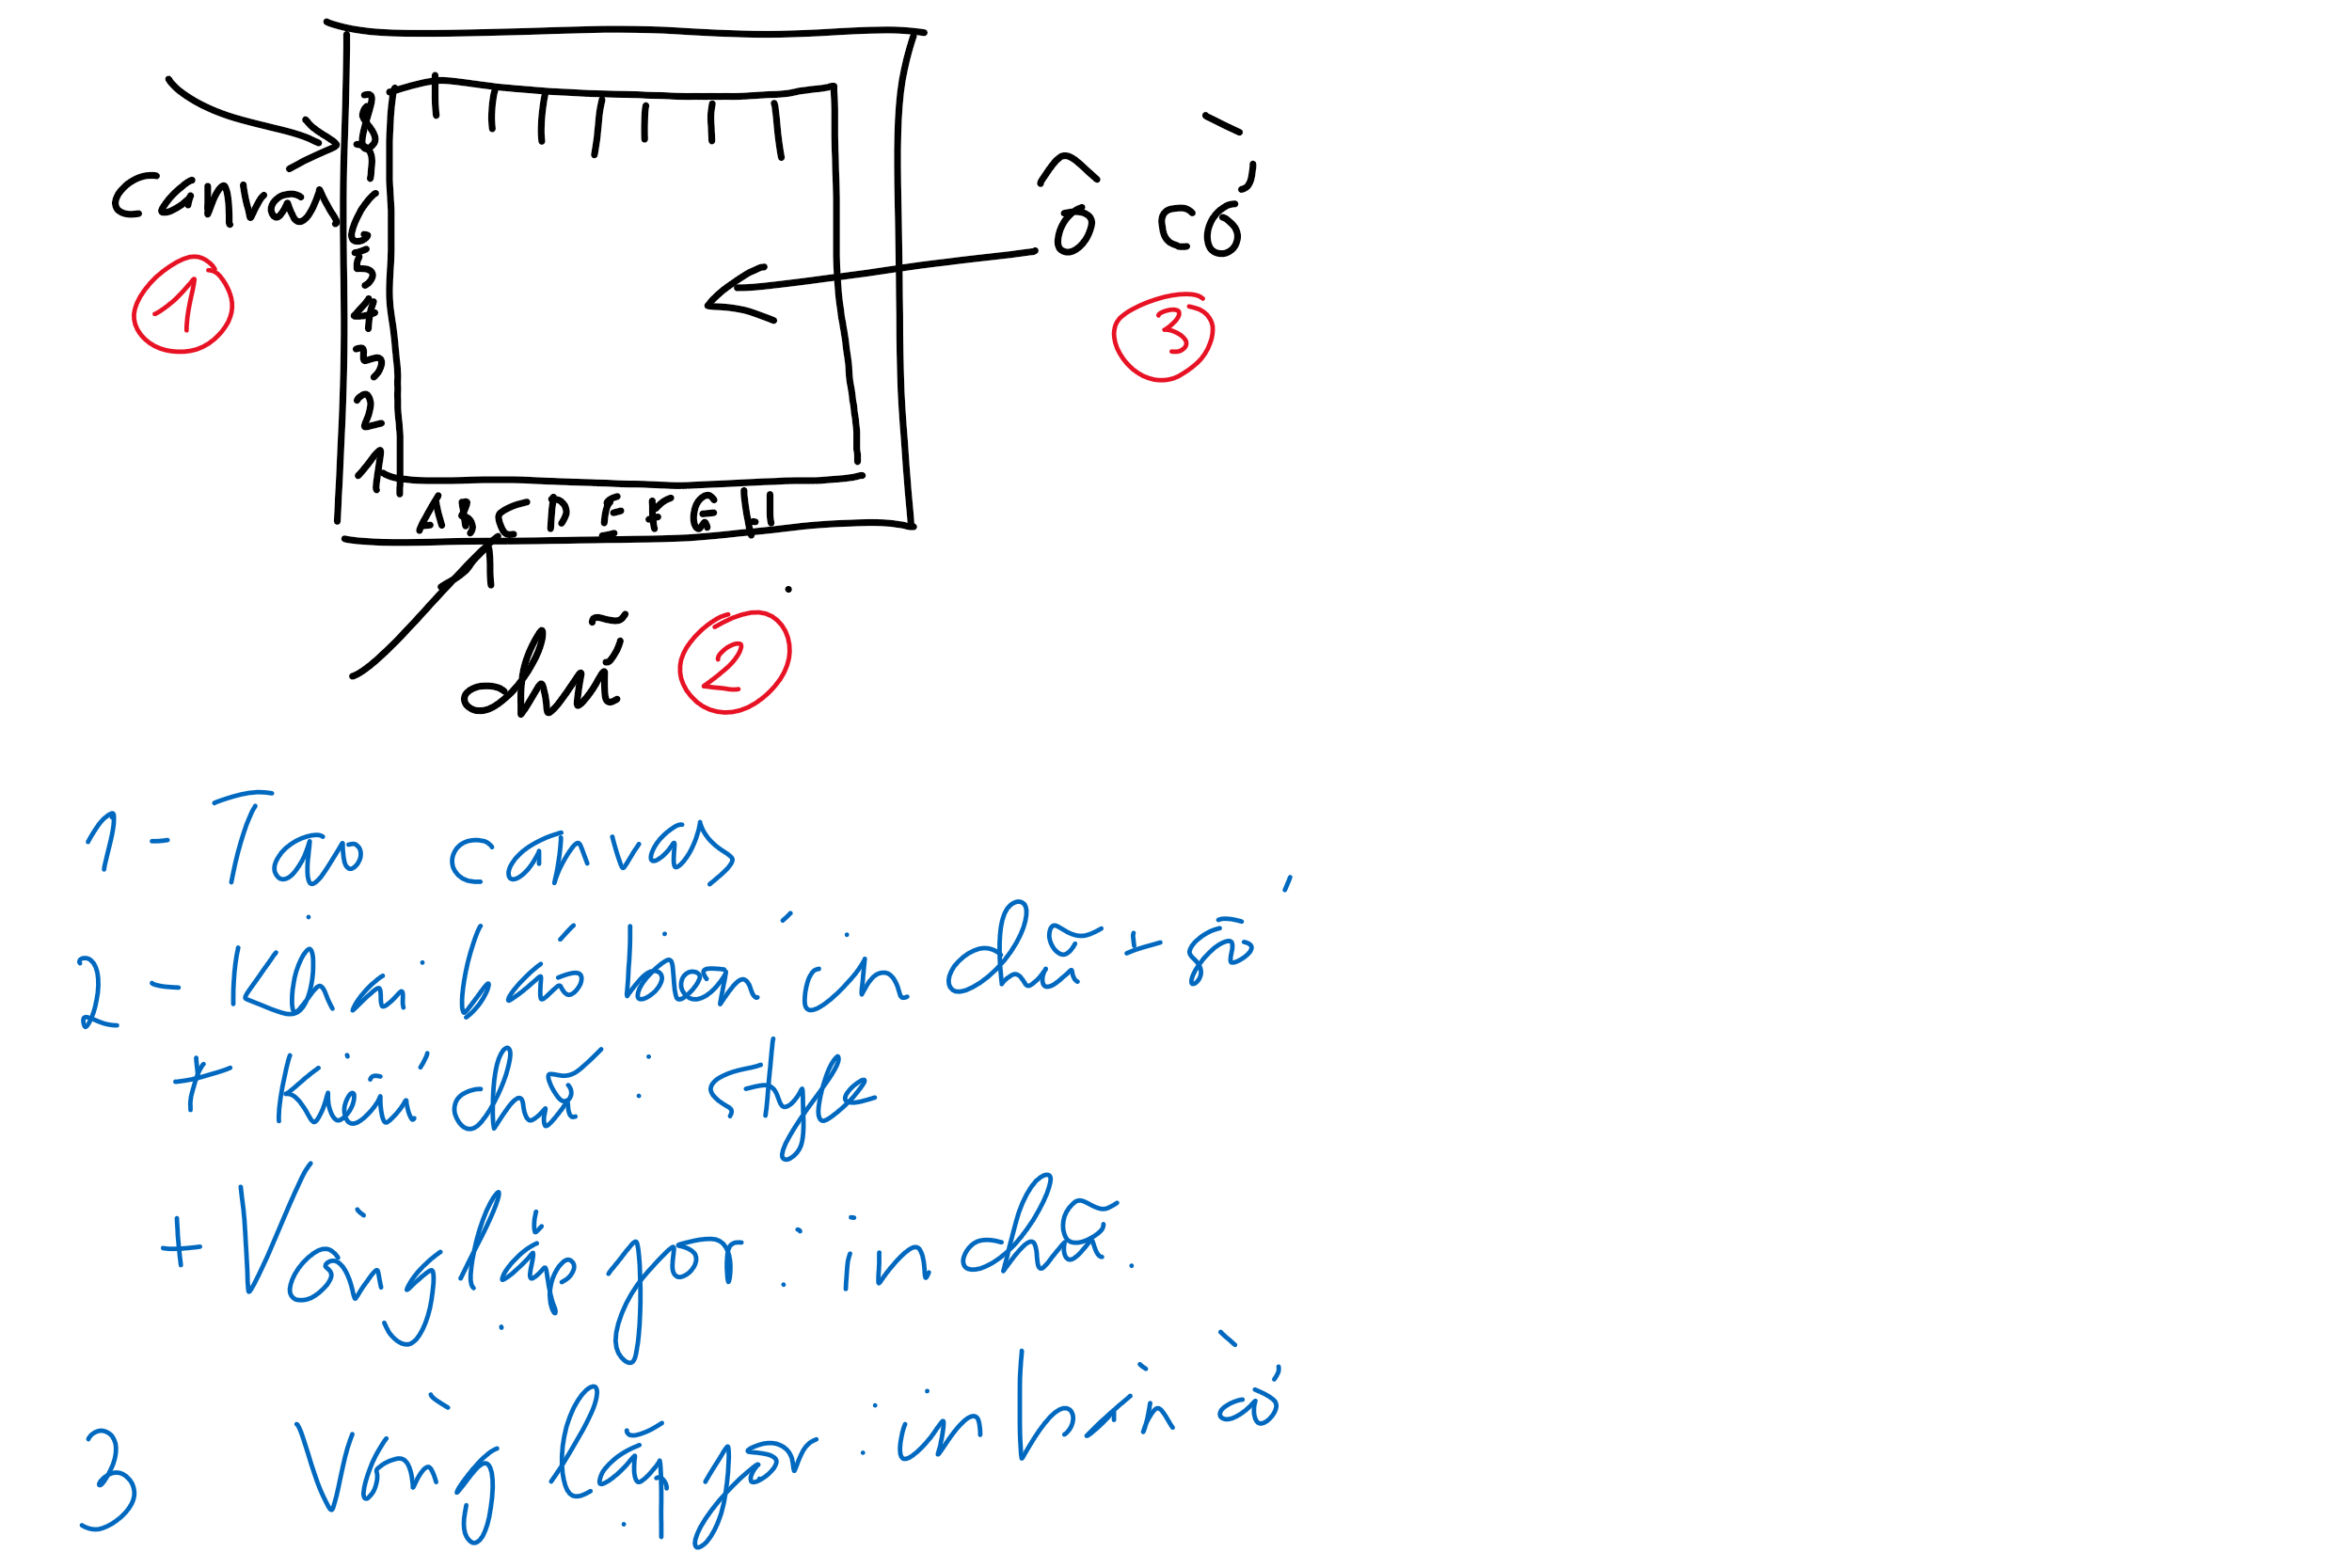 8
7
6
5
4
3
2
1
A B C D E F G H
canvas
1
ô cờ
3
chữ
2
1 - Tạo canvas
2 - Khai báo biến in chữ + số
+ Kiểu chữ : style
+ Vòng lặp for : in chữ
3 Vòng lặp for : in bàn cờ